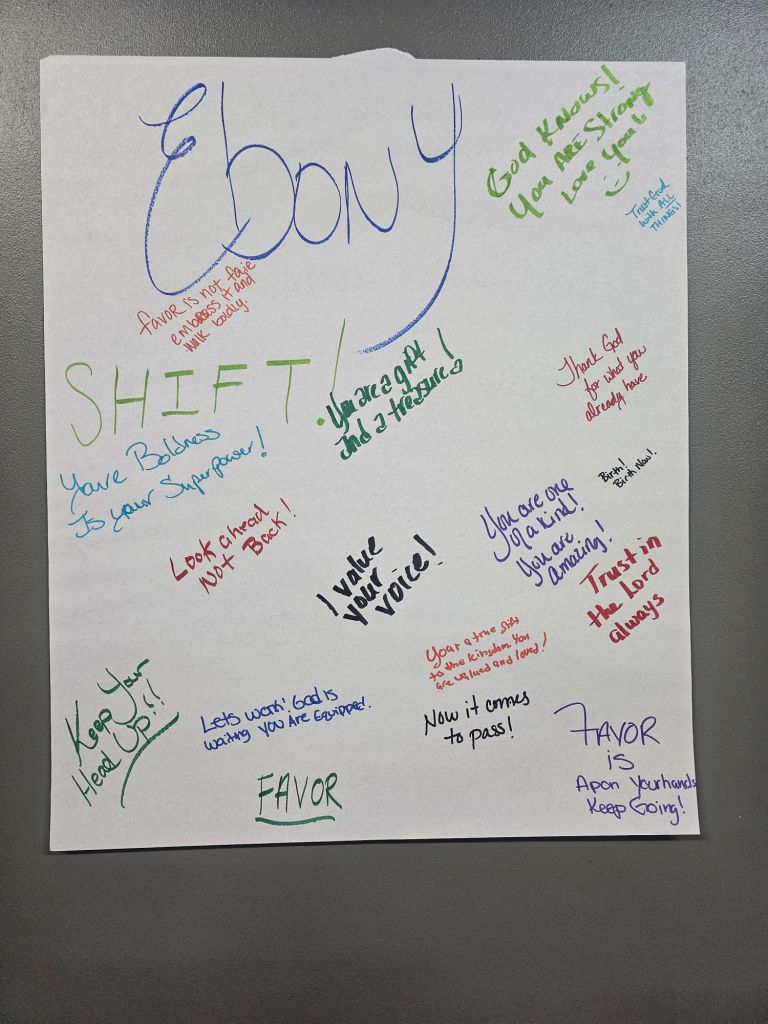 Ebony
God Knows!
You ARE Strong
Love You!
Trust God
with ALL
THINGS!
favor is not faie
embrass it and
walk boldly.
SHIFT!
You are a gift
and a treasure!
Thank God
for what you
already have
Youre Boldness
Is your Superpower!
Birth!
Birth Now!
You are one
of a kind!
You are
amazing!
Look ahead
Not Back!
I value
your
voice!
Trust in
the Lord
always
Your a true gift
to the kingdom. You
are valued and loved!
Keep Your
Head Up!!
Lets work! God is
waiting You Are Equipped.
Now it comes
to pass!
FAVOR
is
Apon Your hands
Keep Going!
FAVOR